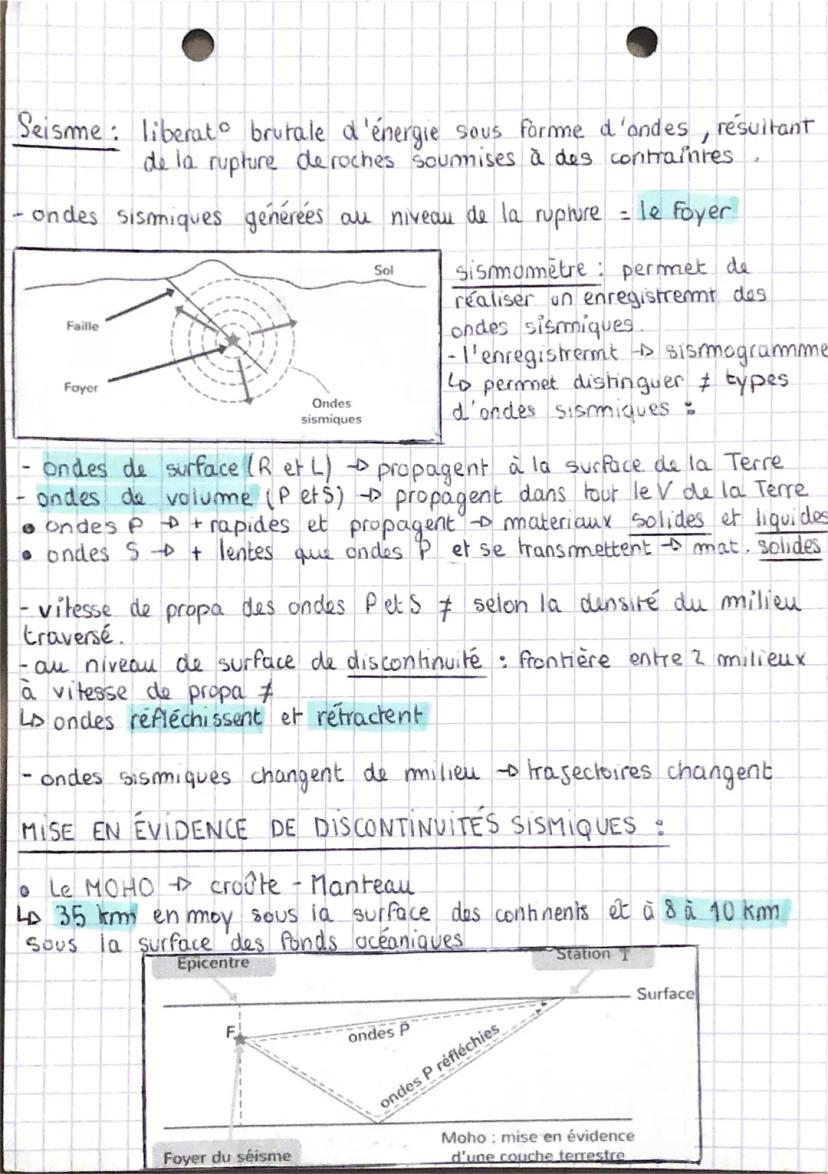 Seisme : liberat° brutale d'énergie sous forme d'ondes, résultant
de la rupture de roches soumises à des contraintes.
- ondes sismiques générées au niveau de la rupture = le foyer
Sol
Faille
Foyer
Ondes
sismiques
sismomètre : permet de
réaliser un enregistremnt des
ondes sismiques.
- l'enregistremnt → sismogramme
↳ permet distinguer ≠ types
d'ondes sismiques :
- ondes de surface (R et L) → propagent à la surface de la Terre
- ondes de volume (P et S) → propagent dans tout le V de la Terre
• ondes P → + rapides et propagent → materiaux solides et liquides
• ondes S → + lentes que ondes P et se transmettent → mat. solides
- vitesse de propa des ondes P et S ≠ selon la densité du milieu
traversé.
- au niveau de surface de discontinuité : frontière entre 2 milieux
à vitesse de propa ≠
↳ ondes réfléchissent et réfractent
- ondes sismiques changent de milieu → trajectoires changent
MISE EN ÉVIDENCE DE DISCONTINUITÉS SISMIQUES :
• Le MOHO → croûte - Manteau
↳ 35 km en moy sous la surface des continents et à 8 à 10 km
sous la surface des fonds océaniques
Epicentre
Station T
Surface
F
ondes P
ondes P réfléchies
Foyer du séisme
Moho : mise en évidence
d'une couche terrestre